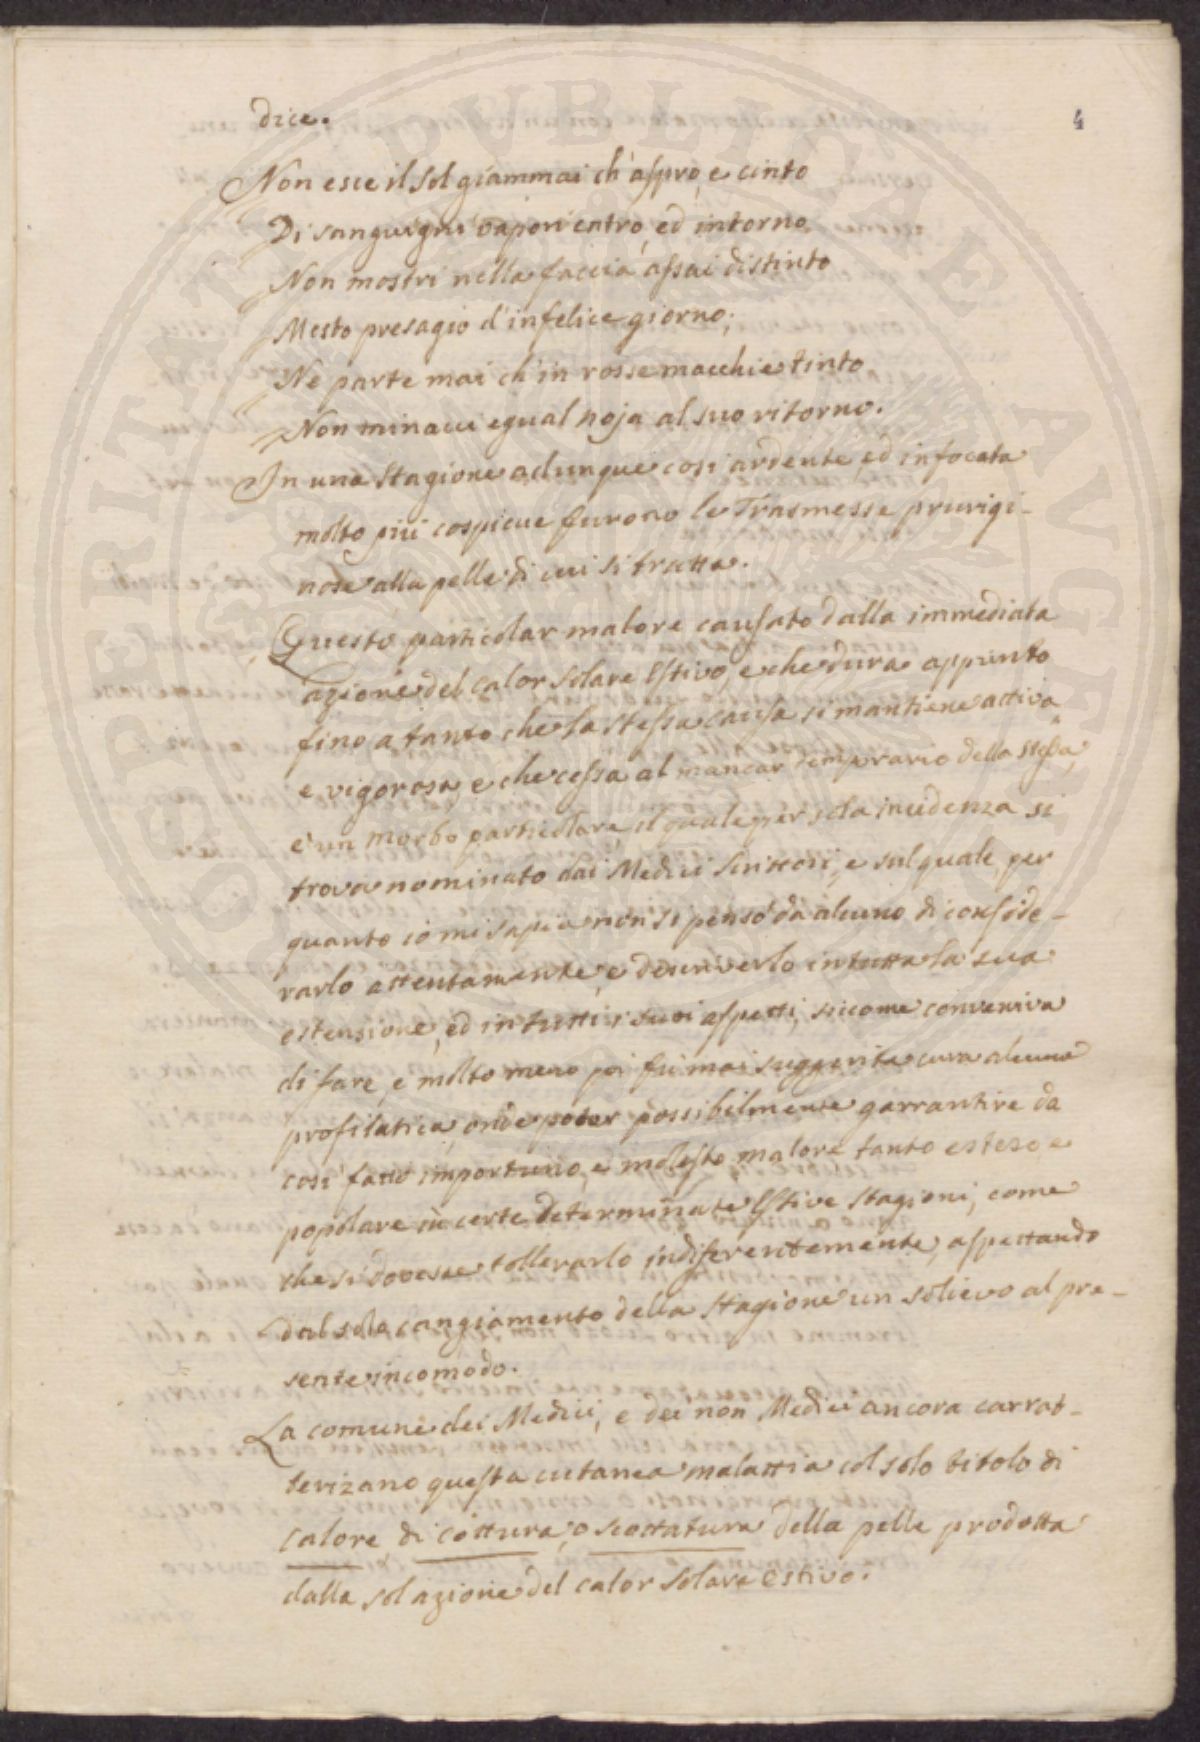 4
dice.
Non esce il Sol giammai ch'aspro, e cinto
Di sanguigni vapori entro, ed intorno
Non mostri nella faccia assai distinto
Mesto presagio d'infelice giorno;
Nè parte mai ch'in rosse macchie tinto
Non minacci egual noja al suo ritorno.
In una Stagione adunque così ardente ed infocata
molto più cospicue furono le Trasmesse prurigi-
nose alla pelle di cui si tratta.
Questo particolar malore causato dalla immediata
azione del calor Solare Estivo, e che dura appunto
fino a tanto che la stessa causa si mantiene attiva,
e vigorosa, e che cessa al mancar temprario della stessa,
è un morbo particolare, il quale per sola incidenza si
trova nominato dai Medici Scrittori, e sul quale, per
quanto io mi sapia non si pensò da alcuno di conside-
rarlo attentamente, e descriverlo in tutta la sua
estensione, ed in tutti i suoi aspetti, siccome conveniva
di fare, e molto meno poi fù mai suggerita cura alcuna
profilatica, onde poter possibilmente garrantire da
così fatto importuno, e molesto malore tanto esteso, e
popolare in certe determinate Estive Stagioni, come
che si dovesse tollerarlo indiferentemente, aspettando
dal solo cangiamento della Stagione un solievo al pre-
sente incomodo.
La comune dei Medici, e dei non Medici ancora carrat-
terizano questa cutanea malattia col solo titolo di
calore di cottura, o scottatura della pelle prodotta
dalla sol azione del calor Solare Estivo.
PROSPERITATI PVBLICAE AVGENDAE